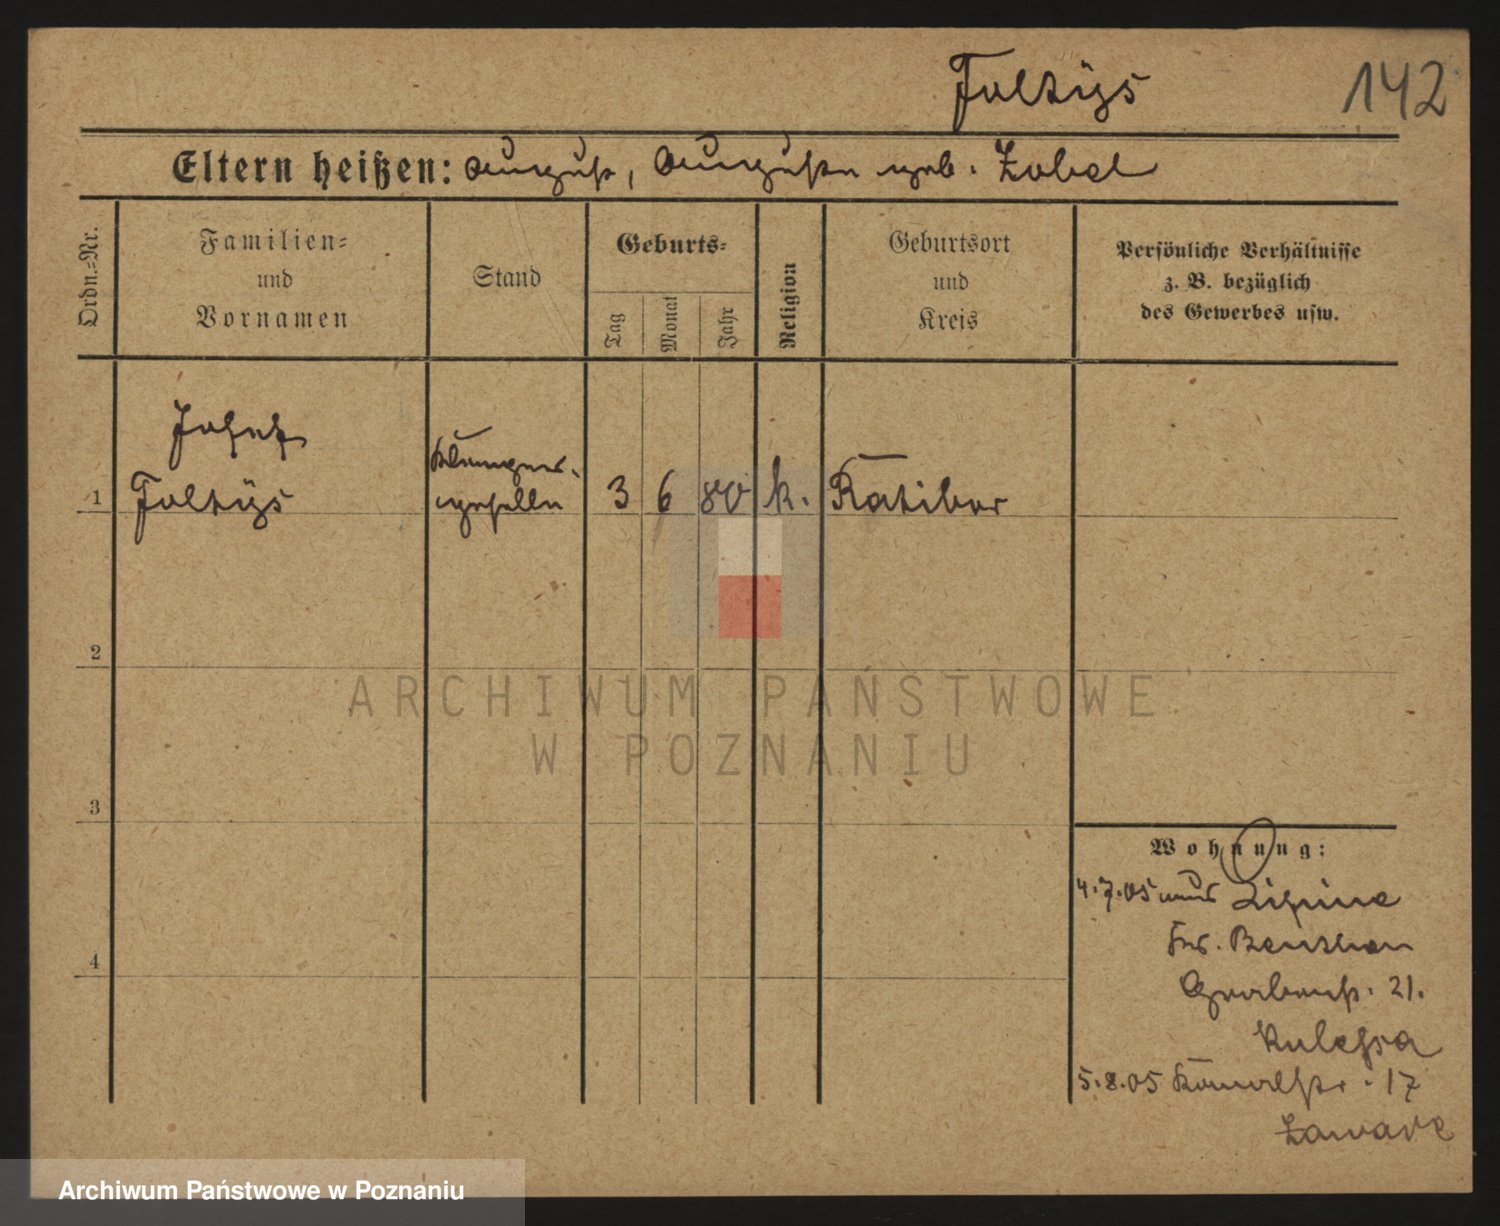 Foltijs
142
Eltern heißen: August, Auguste geb. Zobel
Ordn.=Nr.
Familien=
und
Vornamen
Stand
Geburts=
Tag
Monat
Jahr
Religion
Geburtsort
und
Kreis
Persönliche Verhältnisse
z. B. bezüglich
des Gewerbes usw.
Josef
Klempner-
1 Foltijs geselle 3 6 80 k. Ratibor
2
ARCHIWUM PAŃSTWOWE
W POZNANIU
3
Wohnung:
4.7.05 aus Lipine
Kr. Beuthen
Grabenstr. 21.
Kulessa
5.8.05 Kanalstr. 17
4
Archiwum Państwowe w Poznaniu